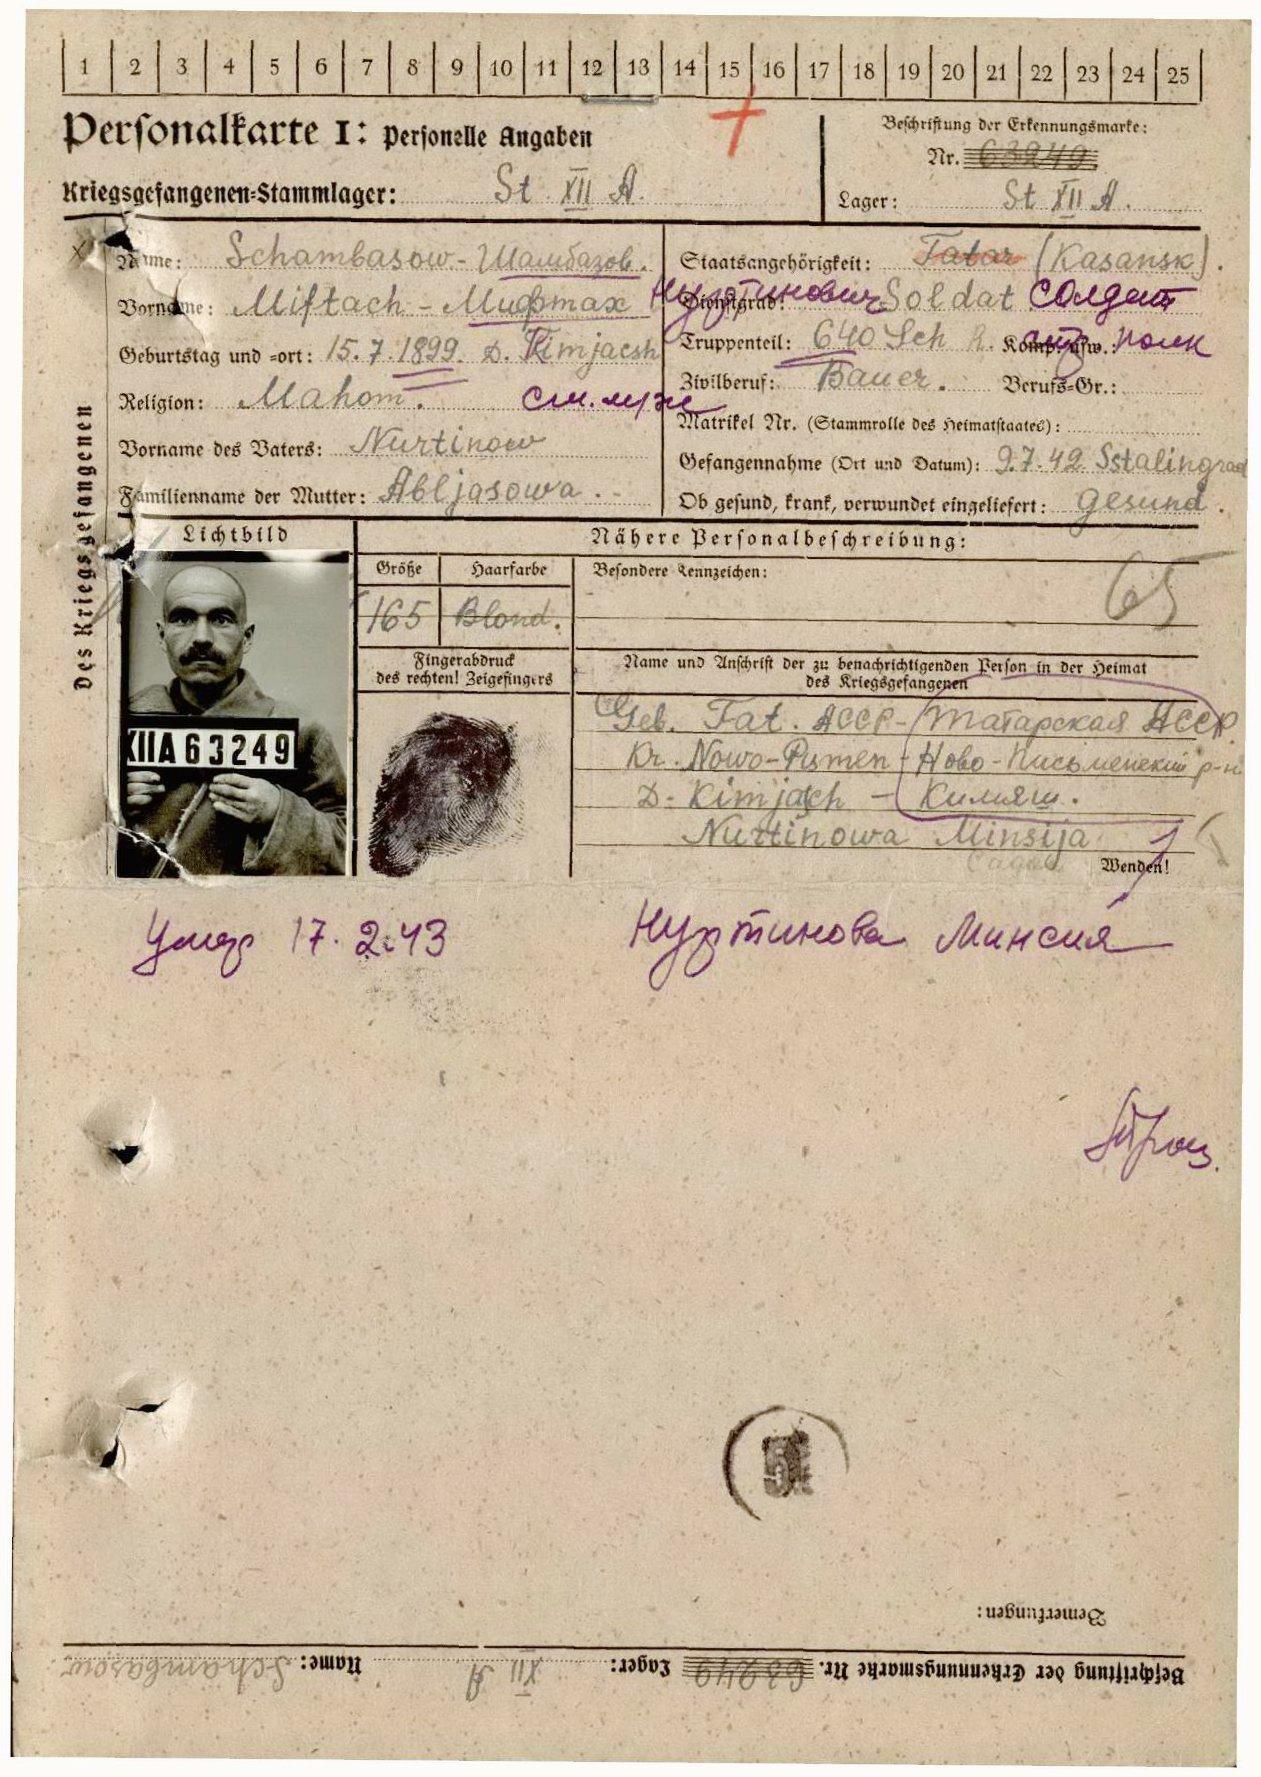 1 2 3 4 5 6 7 8 9 10 11 12 13 14 15 16 17 18 19 20 21 22 23 24 25
Personalkarte I: Personelle Angaben
Beschriftung der Erkennungsmarke:
Nr. 63249
Kriegsgefangenen-Stammlager: St XII A.
Lager: St XII A.
Des Kriegsgefangenen
Name: Schambasow - Шамбазов.
Vorname: Miftach - Мифтах Нуртинович
Geburtstag und -ort: 15.7.1899. D. Kimjacsh
Religion: Mahom.
Vorname des Vaters: Nurtinow
Familienname der Mutter: Abljasowa. -
Staatsangehörigkeit: Tatar (Kasansk).
Dienstgrad: Soldat солдат
Truppenteil: 640 Sch R. Komp. usw.: полк
Zivilberuf: Bauer. Berufs-Gr.:
Matrikel Nr. (Stammrolle des Heimatstaates):
Gefangennahme (Ort und Datum): 9.7.42 Sstalingrad
Ob gesund, krank, verwundet eingeliefert: gesund.
Lichtbild
XIIA 63249
Nähere Personalbeschreibung:
Größe Haarfarbe
165 Blond.
Besondere Kennzeichen:
65
Fingerabdruck
des rechten! Zeigefingers
Name und Anschrift der zu benachrichtigenden Person in der Heimat
des Kriegsgefangenen
Geb. Tat. АССР - Татарская АССР.
Kr. Nowo-Pismen - Ново-Письменский р-н
D. Kimjasch - Кимяш.
Nurtinowa Minsija
Wenden!
Умер 17.2.43
Нуртинова Минсия
51
Bemerkungen:
Beschriftung der Erkennungsmarke Nr. 63249 Lager: XII A Name: Schambasow